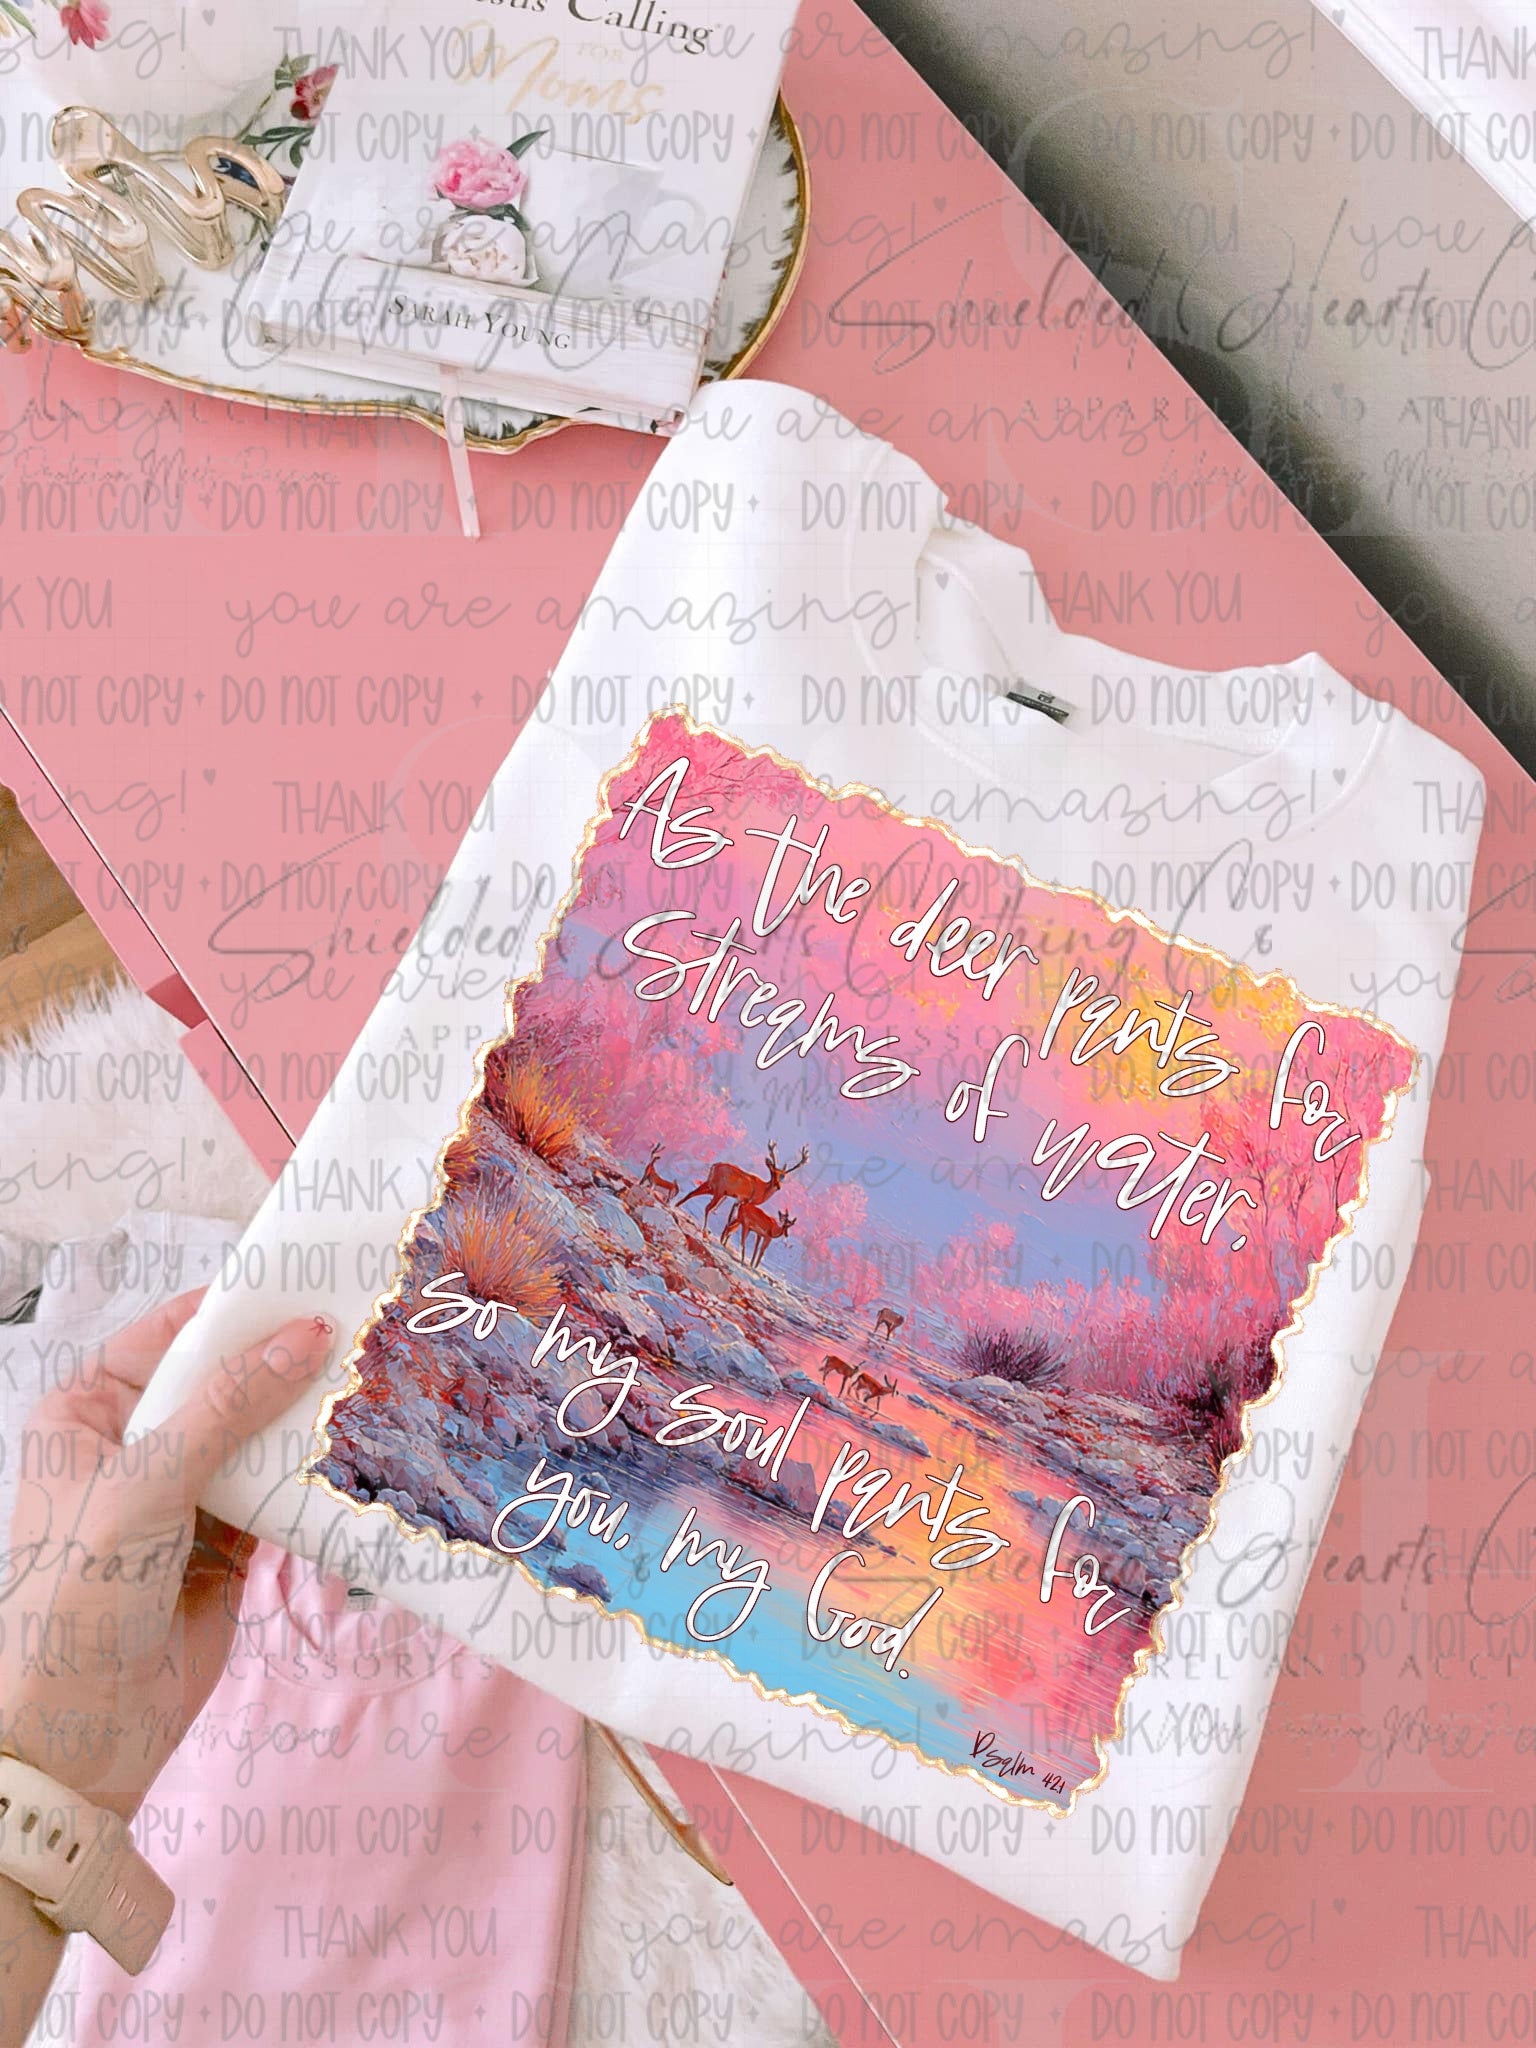 Jesus Calling
FOR
Moms
SARAH YOUNG
As the deer pants for
Streams of water,
so my soul pants for
you, my God.
Psalm 42:1
THANK YOU
you are amazing!
DO NOT COPY
Shielded Hearts Clothing Co
APPAREL AND ACCESSORIES